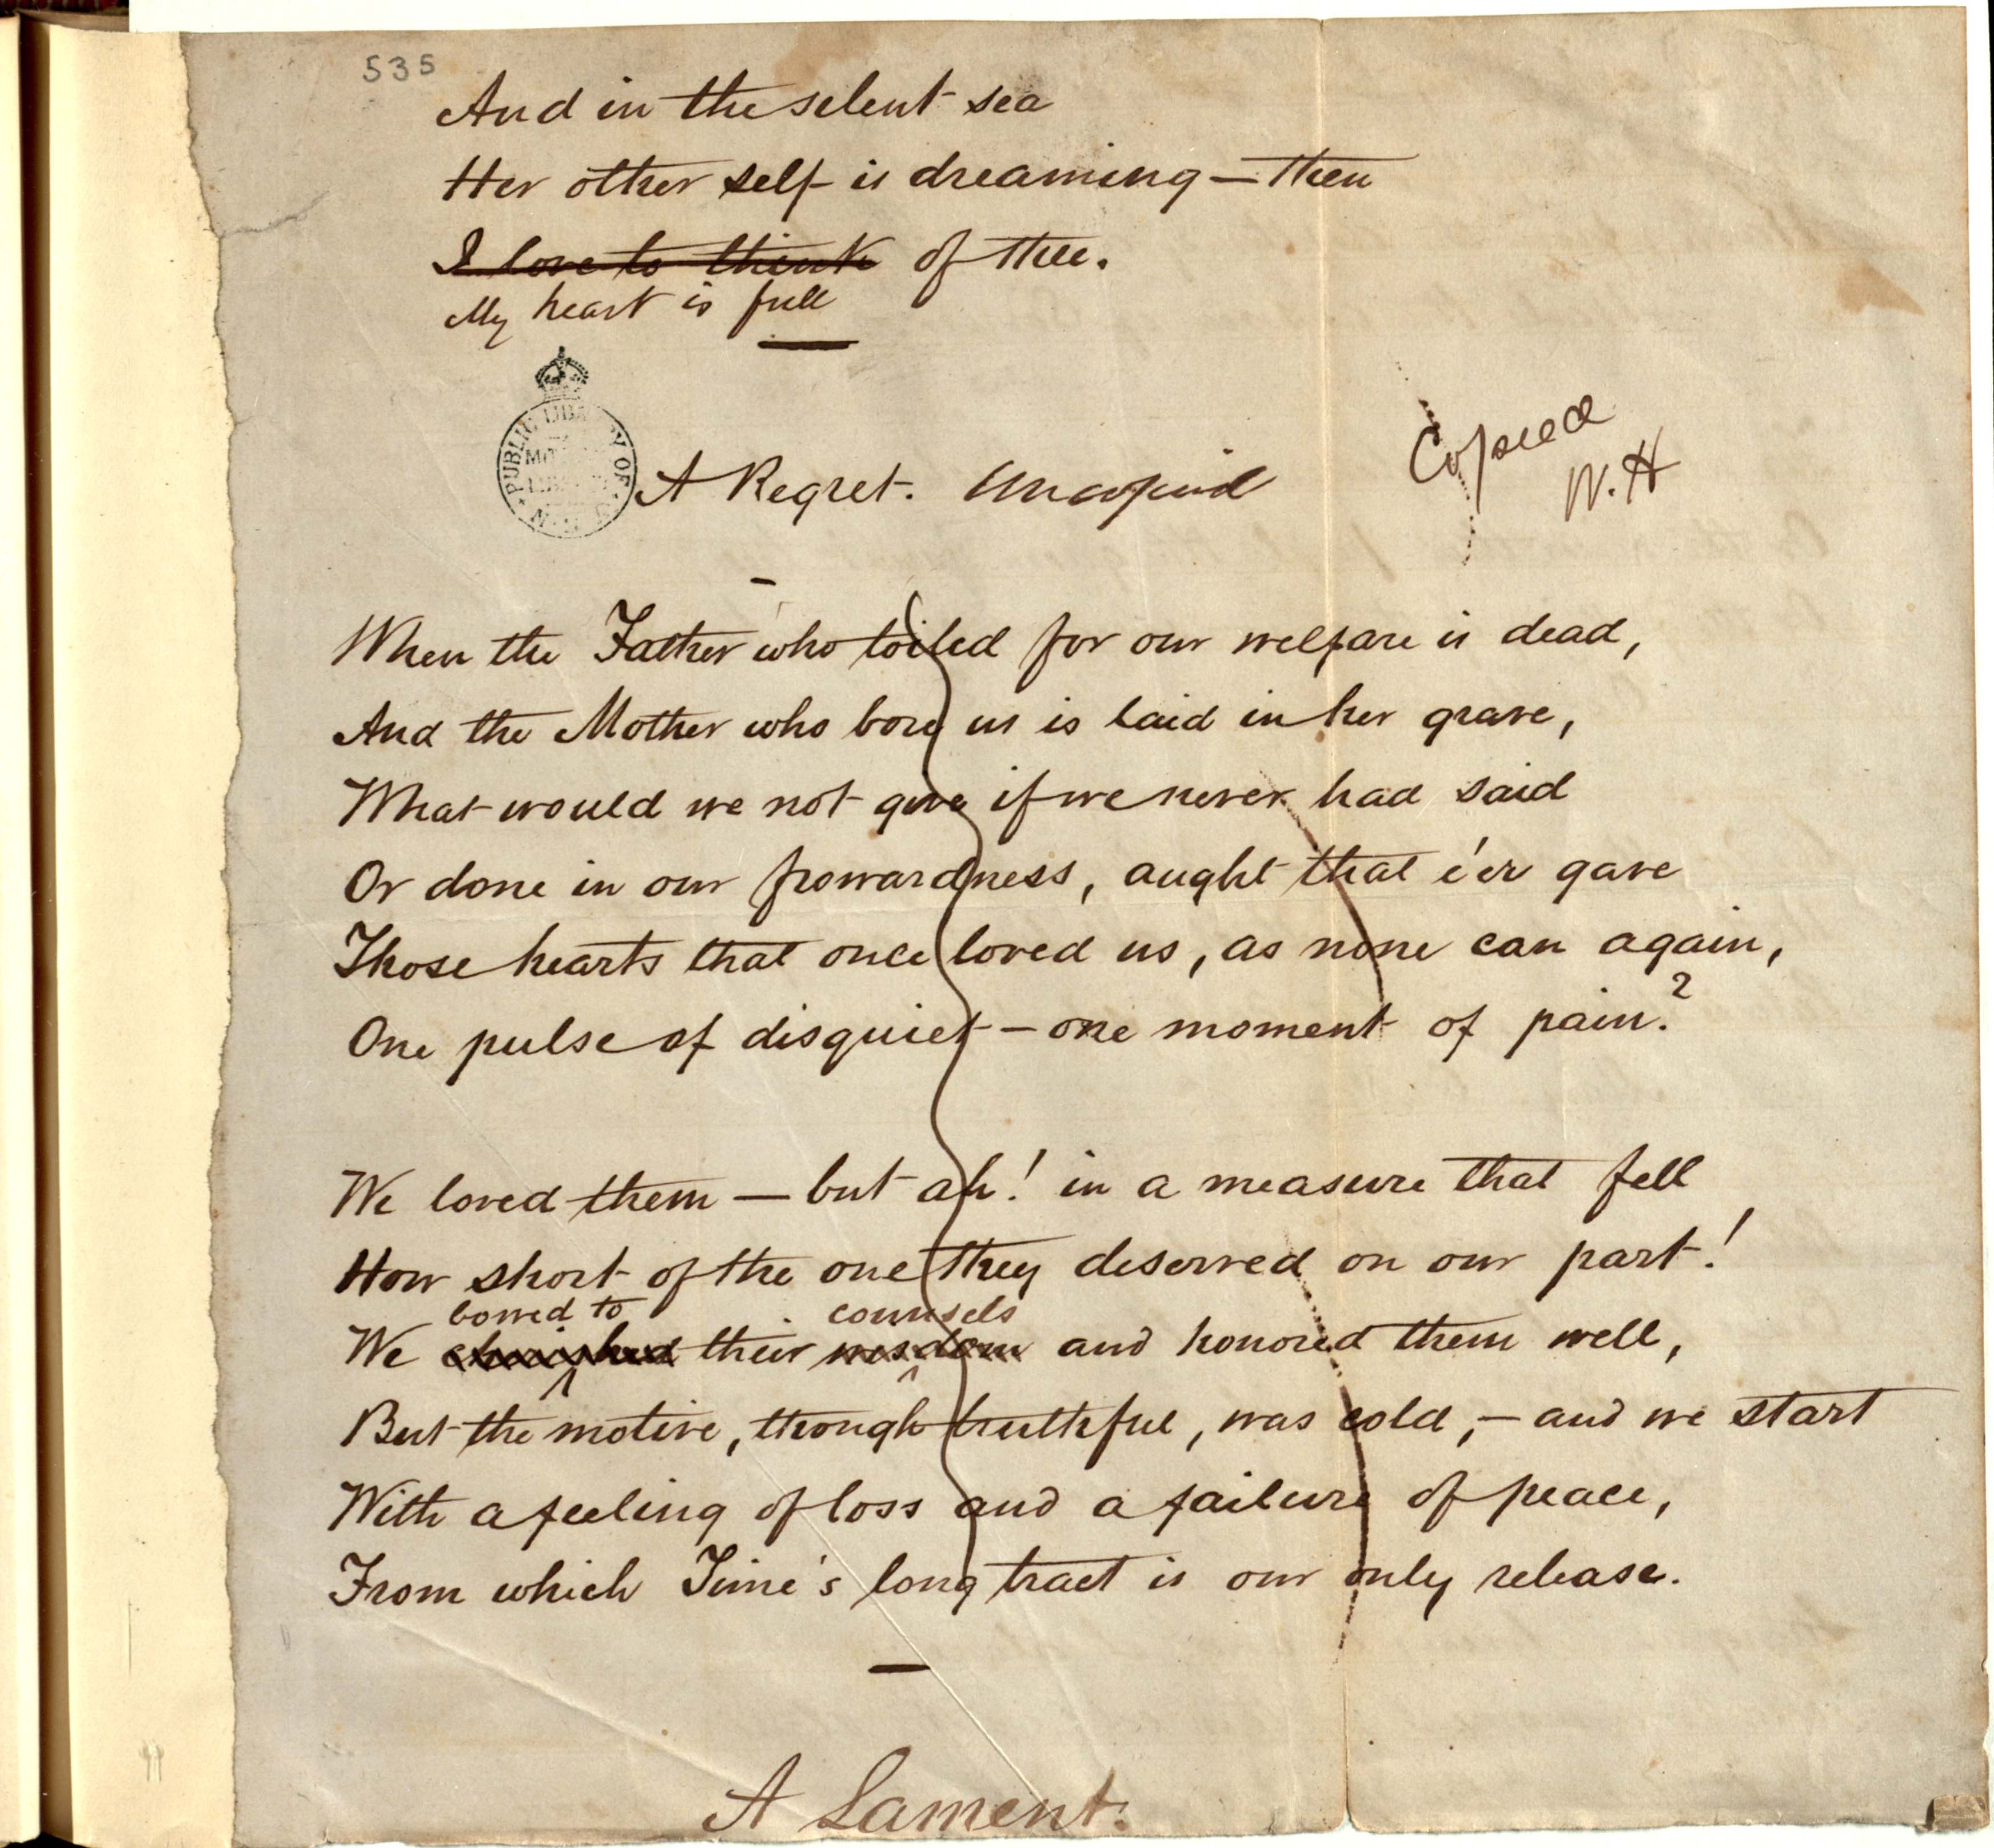 535
And in the silent sea
Her other self is dreaming — then
I love to think of thee.
My heart is full
PUBLIC LIBRARY OF N.S.W.
A Regret. Uncopied
Copied
W. H
When the Father who toiled for our welfare is dead,
And the Mother who bore us is laid in her grave,
What would we not give if we never had said
Or done in our frowardness, aught that e'er gave
Those hearts that once loved us, as none can again,
One pulse of disquiet — one moment of pain?
We loved them — but ah! in a measure that fell
How short of the one they deserved on our part!
bowed to counsels
We cherished their wisdom and honored them well,
But the motive, though truthful, was cold, — and we start
With a feeling of loss and a failure of peace,
From which Time's long tract is our only release.
A Lament.